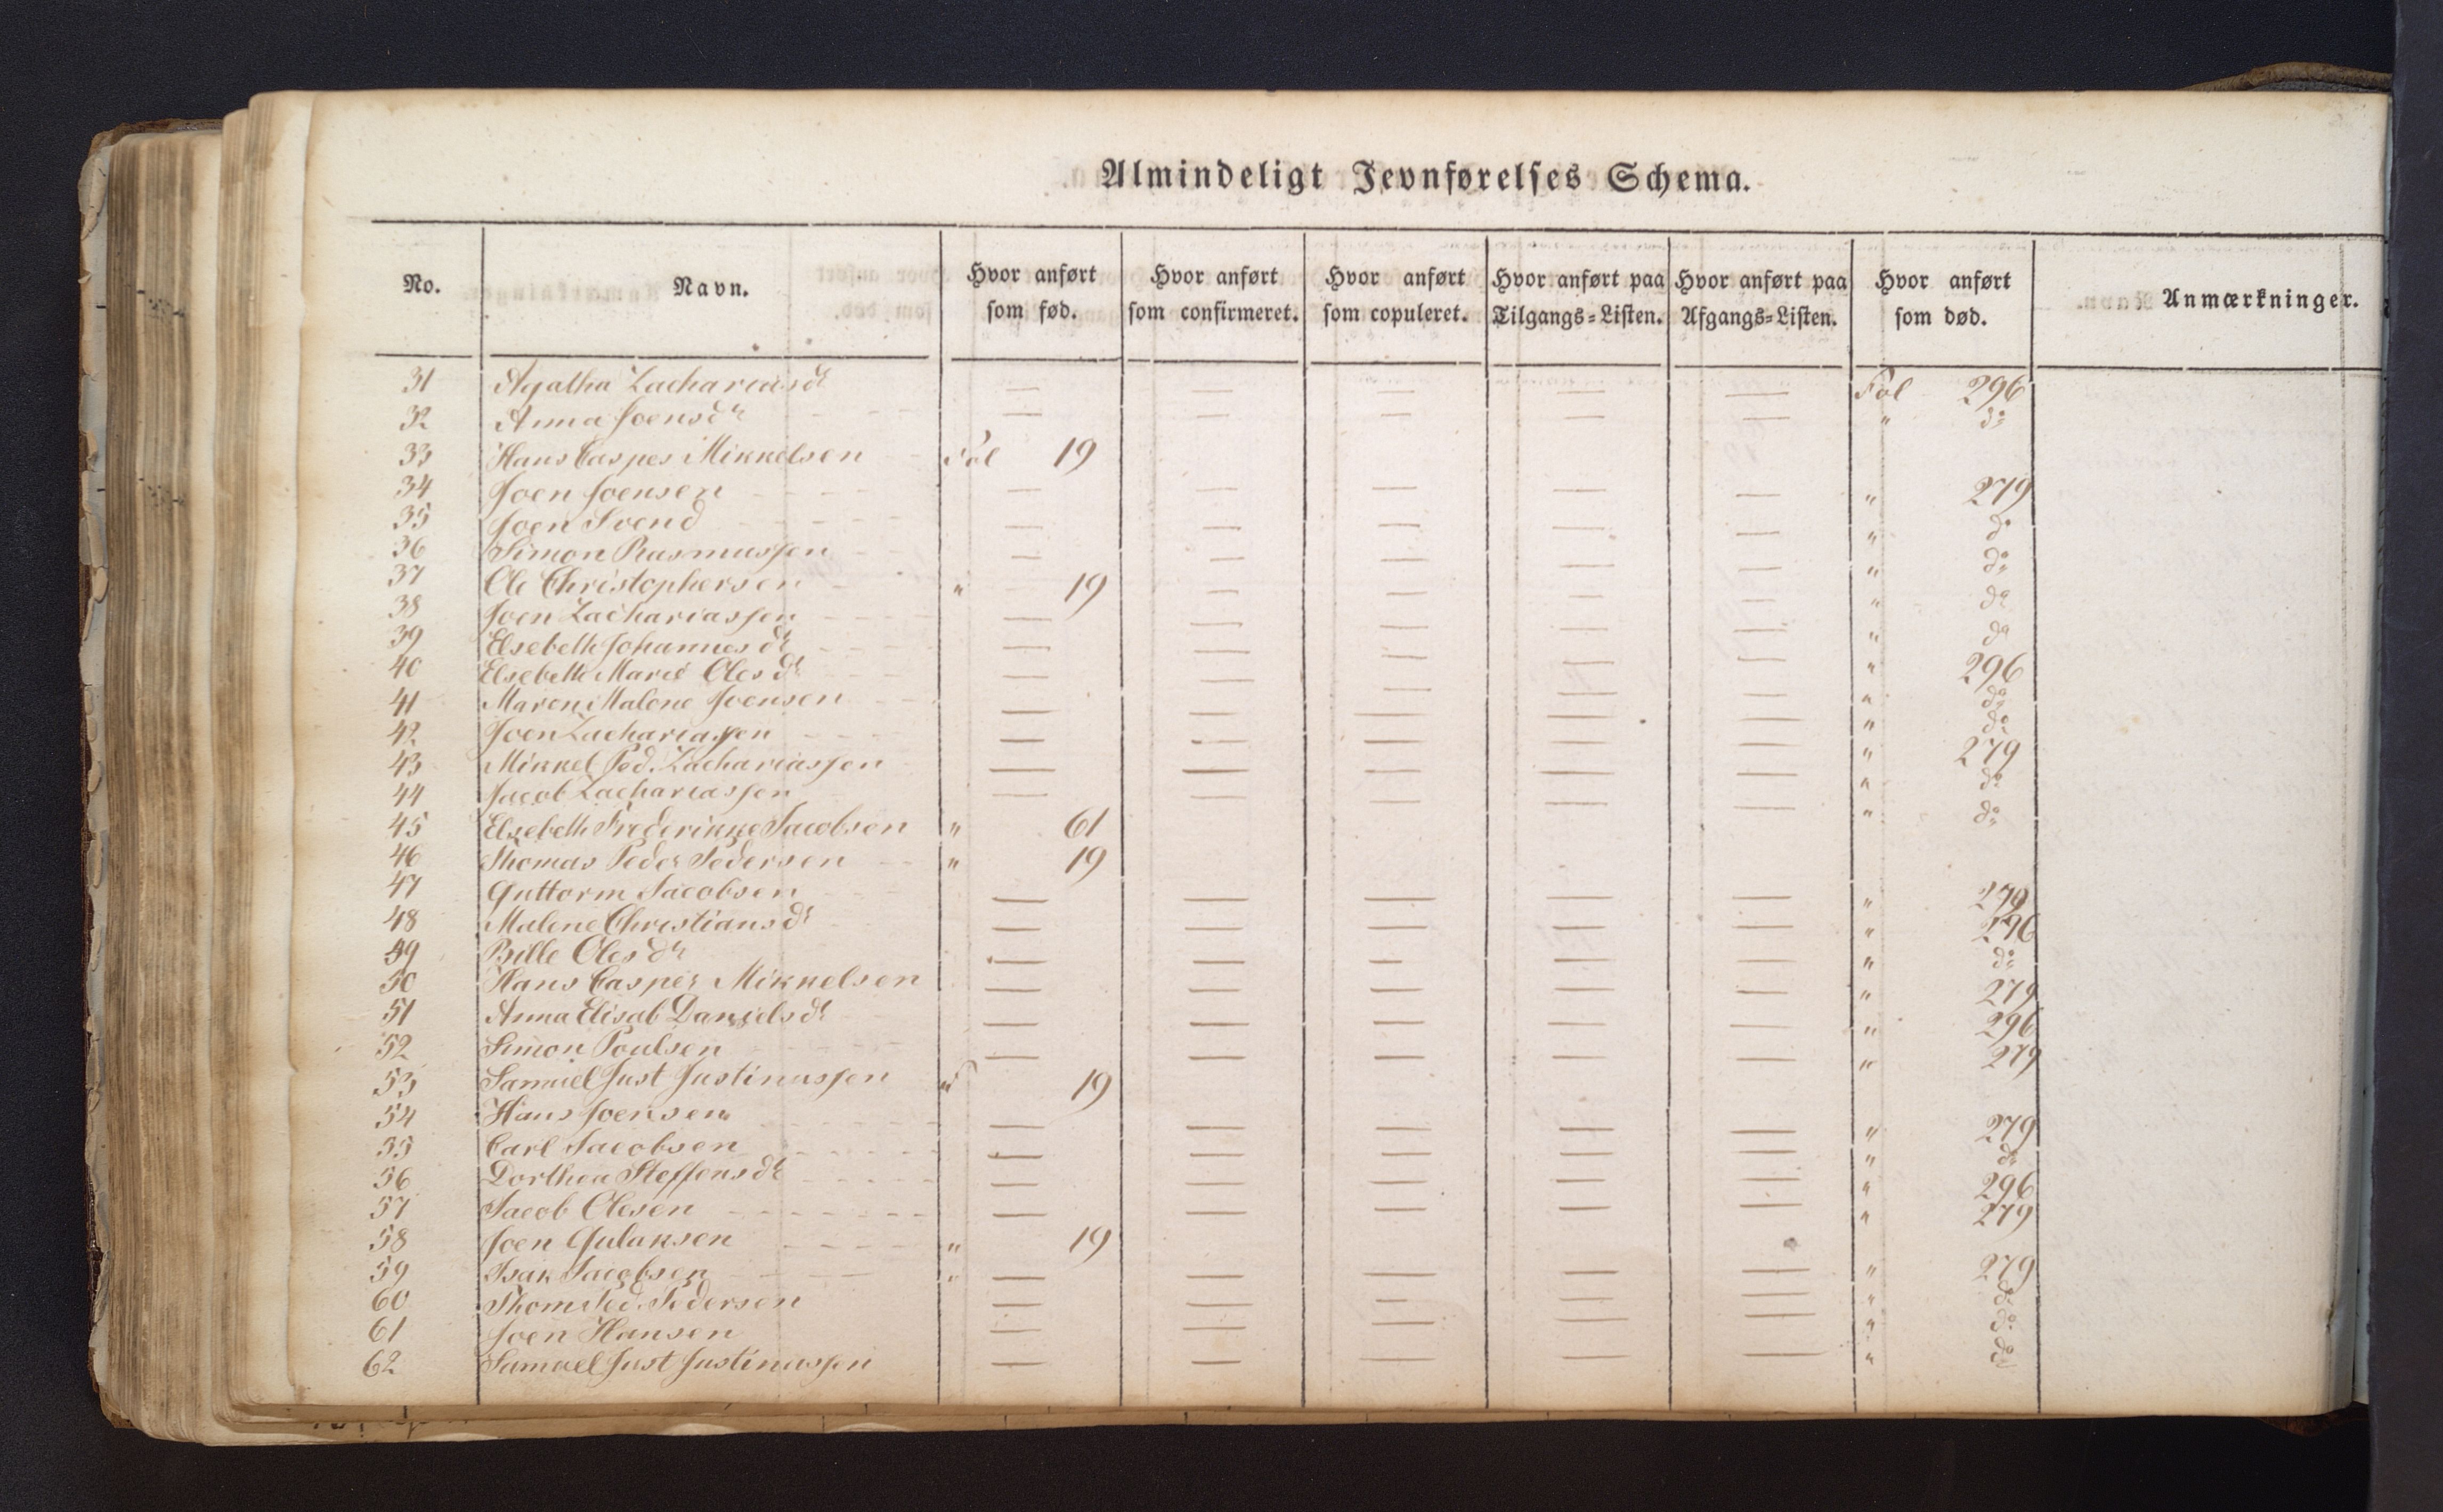 Almindeligt Jevnførelses Schema.
No. | Navn. | Hvor anført som fød. | Hvor anført som confirmeret. | Hvor anført som copuleret. | Hvor anført paa Tilgangs-Listen. | Hvor anført paa Afgangs-Listen. | Hvor anført som død. | Anmærkninger.
31 Agatha Zachariasdr — — — — — Fol 296
32 Anna Joensdr — — — — — " do
33 Hans Casper Mikkelsen Fol 19
34 Joen Joensen — — — — — " 279
35 Joen Svend — — — — — " do
36 Simon Rasmussen — — — — — " do
37 Ole Christophersen " 19 — — — — " do
38 Joen Zachariassen — — — — — " do
39 Elsebeth Johannesdr — — — — — " 296
40 Elsebeth Marie Olesdr — — — — — " do
41 Maren Malene Joensen — — — — — " do
42 Joen Zachariassen — — — — — " 279
43 Mikkel Ped. Zachariassen — — — — — " do
44 Jacob Zachariassen — — — — — " do
45 Elsebeth Frederikke Jacobsen " 61
46 Thomas Peder Pedersen " 19
47 Guttorm Jacobsen — — — — — " 279
48 Malene Christiansdr — — — — — " 296
49 Bille Olesdr — — — — — " do
50 Hans Casper Mikkelsen — — — — — " 279
51 Anna Elisab Danielsdr — — — — — " 296
52 Simon Poulsen — — — — — " 279
53 Samuel Just Justinussen " 19
54 Hans Joensen — — — — — " 279
55 Carl Jacobsen — — — — — " do
56 Dorthea Steffensdr — — — — — " 296
57 Jacob Olesen — — — — — " 279
58 Joen Gulaksen " 19
59 Isak Jacobsen " — — — — — " 279
60 Thom Ped. Pedersen — — — — — " do
61 Joen Hansen — — — — — " do
62 Samuel Just Justinussen — — — — — " do